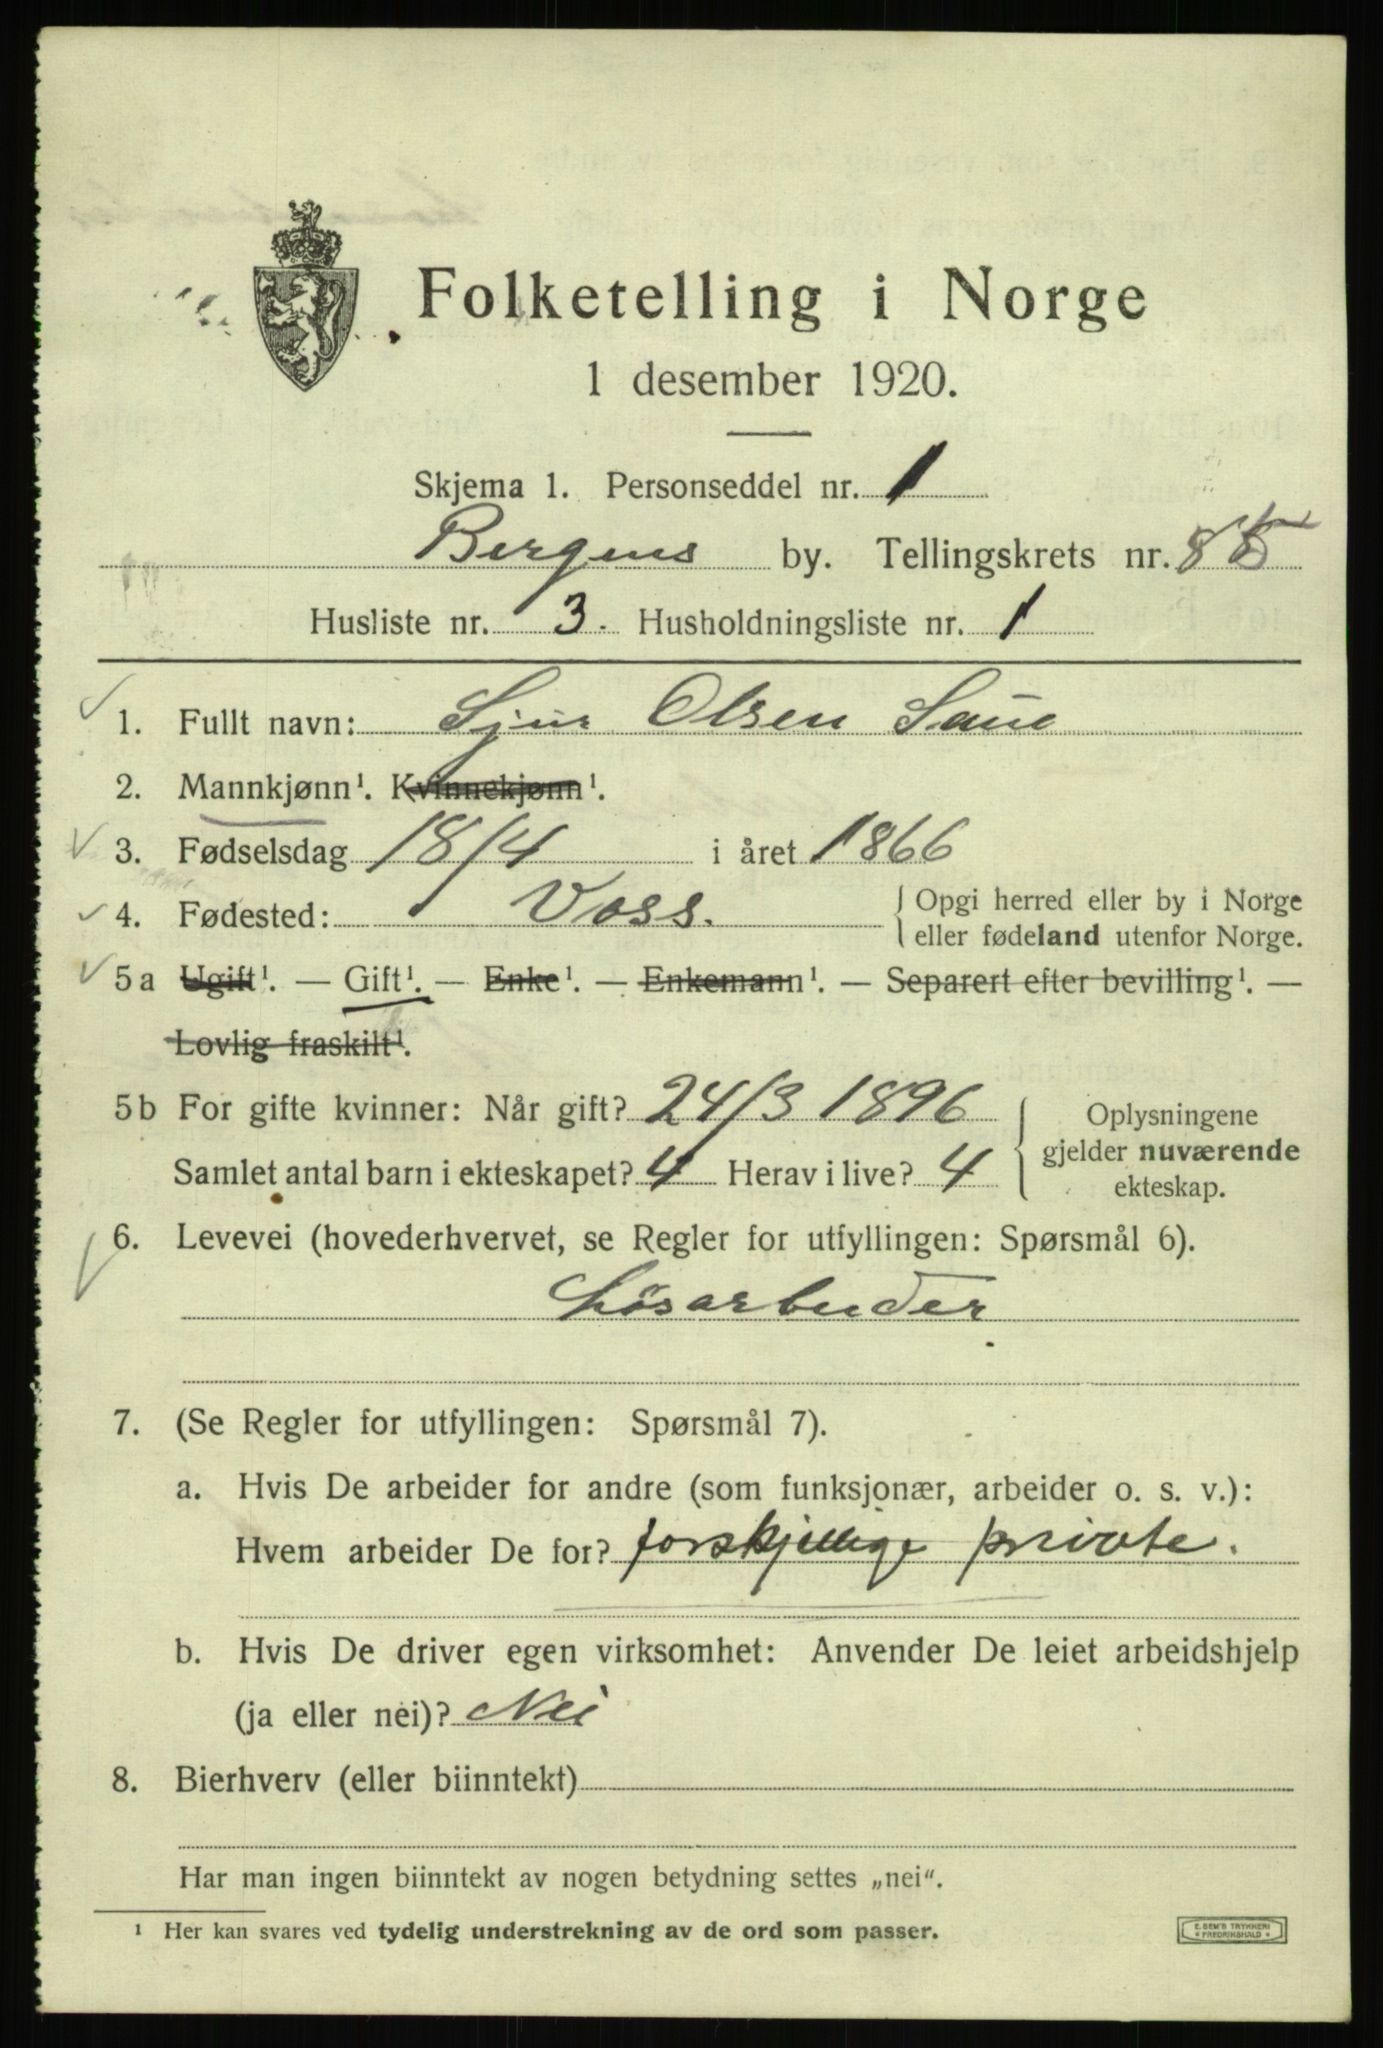 Folketelling i Norge
1 desember 1920.
Skjema 1. Personseddel nr. 1
Bergens by. Tellingskrets nr.
Husliste nr. 3. Husholdningsliste nr. 1
1. Fullt navn: Sjur Olsen Saue
2. Mannkjønn¹. Kvinnekjønn¹.
3. Fødselsdag 18/4 i året 1866
4. Fødested: Voss. { Opgi herred eller by i Norge
eller fødeland utenfor Norge.
5a Ugift¹. — Gift¹. — Enke¹. — Enkemann¹. — Separert efter bevilling¹. —
Lovlig fraskilt¹.
5b For gifte kvinner: Når gift? 24/3 1896
Samlet antal barn i ekteskapet? 4 Herav i live? 4
Oplysningene
gjelder nuværende
ekteskap.
6. Levevei (hovederhvervet, se Regler for utfyllingen: Spørsmål 6).
Løsarbeider
7. (Se Regler for utfyllingen: Spørsmål 7).
a. Hvis De arbeider for andre (som funksjonær, arbeider o. s. v.):
Hvem arbeider De for? forskjellige private.
b. Hvis De driver egen virksomhet: Anvender De leiet arbeidshjelp
(ja eller nei)? Nei
8. Bierhverv (eller biinntekt)
Har man ingen biinntekt av nogen betydning settes „nei“.
¹ Her kan svares ved tydelig understrekning av de ord som passer.
E. SEM'S TRYKKERI
* FREDRIKSHALD *